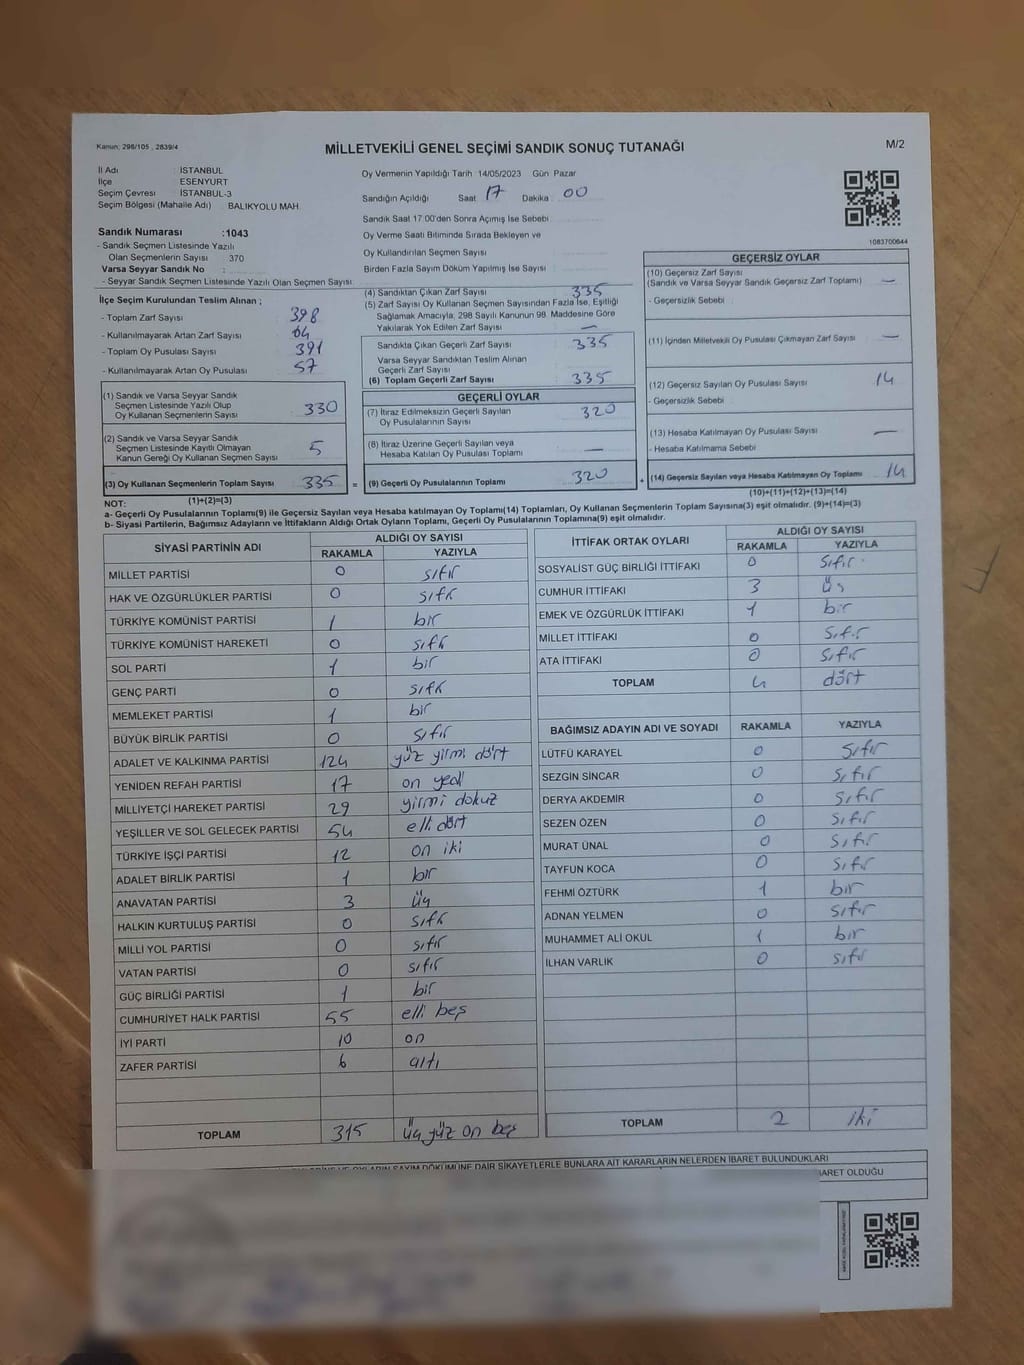 Kanun: 298/105 , 2839/4
MİLLETVEKİLİ GENEL SEÇİMİ SANDIK SONUÇ TUTANAĞI
M/2
İl Adı : İSTANBUL
İlçe : ESENYURT
Seçim Çevresi : İSTANBUL-3
Seçim Bölgesi (Mahalle Adı) BALIKYOLU MAH.
Sandık Numarası :1043
- Sandık Seçmen Listesinde Yazılı
Olan Seçmenlerin Sayısı : 370
Varsa Seyyar Sandık No :
- Seyyar Sandık Seçmen Listesinde Yazılı Olan Seçmen Sayısı
Oy Vermenin Yapıldığı Tarih :14/05/2023 Gün Pazar
Sandığın Açıldığı Saat : 17 Dakika : 00
Sandık Saat 17.00'den Sonra Açımış İse Sebebi
Oy Verme Saati Bitiminde Sırada Bekleyen ve
Oy Kullandırılan Seçmen Sayısı
Birden Fazla Sayım Döküm Yapılmış İse Sayısı
1083700644
İlçe Seçim Kurulundan Teslim Alınan ;
- Toplam Zarf Sayısı : 398
- Kullanılmayarak Artan Zarf Sayısı : 64
- Toplam Oy Pusulası Sayısı : 391
- Kullanılmayarak Artan Oy Pusulası : 57
(1) Sandık ve Varsa Seyyar Sandık
Seçmen Listesinde Yazılı Olup
Oy Kullanan Seçmenlerin Sayısı : 330
(2) Sandık ve Varsa Seyyar Sandık
Seçmen Listesinde Kayıtlı Olmayan
Kanun Gereği Oy Kullanan Seçmen Sayısı : 5
(3) Oy Kullanan Seçmenlerin Toplam Sayısı : 335 =
(1)+(2)=(3)
(4) Sandıktan Çıkan Zarf Sayısı : 335
(5) Zarf Sayısı Oy Kullanan Seçmen Sayısından Fazla İse, Eşitliği
Sağlamak Amacıyla, 298 Sayılı Kanunun 98. Maddesine Göre
Yakılarak Yok Edilen Zarf Sayısı : —
Sandıkta Çıkan Geçerli Zarf Sayısı : 335
Varsa Seyyar Sandıktan Teslim Alınan
Geçerli Zarf Sayısı
(6) Toplam Geçerli Zarf Sayısı : 335
GEÇERLİ OYLAR
(7) İtiraz Edilmeksizin Geçerli Sayılan
Oy Pusulalarının Sayısı : 320
(8) İtiraz Üzerine Geçerli Sayılan veya
Hesaba Katılan Oy Pusulası Toplamı : —
(9) Geçerli Oy Pusulalarının Toplamı : 320 +
GEÇERSİZ OYLAR
(10) Geçersiz Zarf Sayısı
(Sandık ve Varsa Seyyar Sandık Geçersiz Zarf Toplamı) : —
- Geçersizlik Sebebi
(11) İçinden Milletvekili Oy Pusulası Çıkmayan Zarf Sayısı : —
(12) Geçersiz Sayılan Oy Pusulası Sayısı : 14
- Geçersizlik Sebebi
(13) Hesaba Katılmayan Oy Pusulası Sayısı : —
- Hesaba Katılmama Sebebi
(14) Geçersiz Sayılan veya Hesaba Katılmayan Oy Toplamı : 14
(10)+(11)+(12)+(13)=(14)
NOT:
a- Geçerli Oy Pusulalarının Toplamı(9) ile Geçersiz Sayılan veya Hesaba katılmayan Oy Toplamı(14) Toplamları, Oy Kullanan Seçmenlerin Toplam Sayısına(3) eşit olmalıdır. (9)+(14)=(3)
b- Siyasi Partilerin, Bağımsız Adayların ve İttifakların Aldığı Ortak Oyların Toplamı, Geçerli Oy Pusulalarının Toplamına(9) eşit olmalıdır.
SİYASİ PARTİNİN ADI ALDIĞI OY SAYISI
RAKAMLA YAZIYLA
MİLLET PARTİSİ 0 sıfır
HAK VE ÖZGÜRLÜKLER PARTİSİ 0 sıfır
TÜRKİYE KOMÜNİST PARTİSİ 1 bir
TÜRKİYE KOMÜNİST HAREKETİ 0 sıfır
SOL PARTİ 1 bir
GENÇ PARTİ 0 sıfır
MEMLEKET PARTİSİ 1 bir
BÜYÜK BİRLİK PARTİSİ 0 sıfır
ADALET VE KALKINMA PARTİSİ 124 yüz yirmi dört
YENİDEN REFAH PARTİSİ 17 on yedi
MİLLİYETÇİ HAREKET PARTİSİ 29 yirmi dokuz
YEŞİLLER VE SOL GELECEK PARTİSİ 54 elli dört
TÜRKİYE İŞÇİ PARTİSİ 12 on iki
ADALET BİRLİK PARTİSİ 1 bir
ANAVATAN PARTİSİ 3 üç
HALKIN KURTULUŞ PARTİSİ 0 sıfır
MİLLİ YOL PARTİSİ 0 sıfır
VATAN PARTİSİ 0 sıfır
GÜÇ BİRLİĞİ PARTİSİ 1 bir
CUMHURİYET HALK PARTİSİ 55 elli beş
İYİ PARTİ 10 on
ZAFER PARTİSİ 6 altı
TOPLAM 315 üç yüz on beş
İTTİFAK ORTAK OYLARI ALDIĞI OY SAYISI
RAKAMLA YAZIYLA
SOSYALİST GÜÇ BİRLİĞİ İTTİFAKI 0 sıfır
CUMHUR İTTİFAKI 3 üç
EMEK VE ÖZGÜRLÜK İTTİFAKI 1 bir
MİLLET İTTİFAKI 0 sıfır
ATA İTTİFAKI 0 sıfır
TOPLAM 4 dört
BAĞIMSIZ ADAYIN ADI VE SOYADI RAKAMLA YAZIYLA
LÜTFÜ KARAYEL 0 sıfır
SEZGİN SİNCAR 0 sıfır
DERYA AKDEMİR 0 sıfır
SEZEN ÖZEN 0 sıfır
MURAT ÜNAL 0 sıfır
TAYFUN KOCA 0 sıfır
FEHMİ ÖZTÜRK 1 bir
ADNAN YELMEN 0 sıfır
MUHAMMET ALİ OKUL 1 bir
İLHAN VARLIK 0 sıfır
TOPLAM 2 iki
SAYIM DÖKÜMÜNE DAİR ŞİKAYETLERLE BUNLARA AİT KARARLARIN NELERDEN İBARET BULUNDUKLARI
OLDUĞU